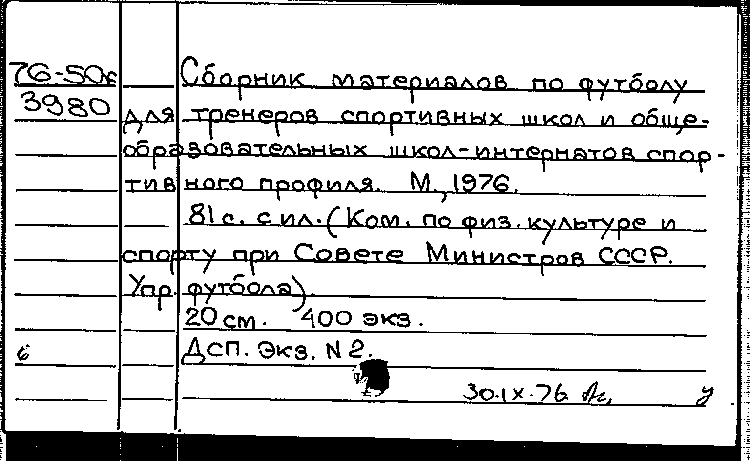 76-50с Сборник материалов по футболу
3980 для тренеров спортивных школ и обще-
образовательных школ-интернатов спор-
тивного профиля. М., 1976.
81с. с ил. (Ком. по физ. культуре и
спорту при Совете Министров СССР.
Упр. футбола).
20 см. 400 экз.
б Дсп. Экз. N 2.
30.IX.76. у